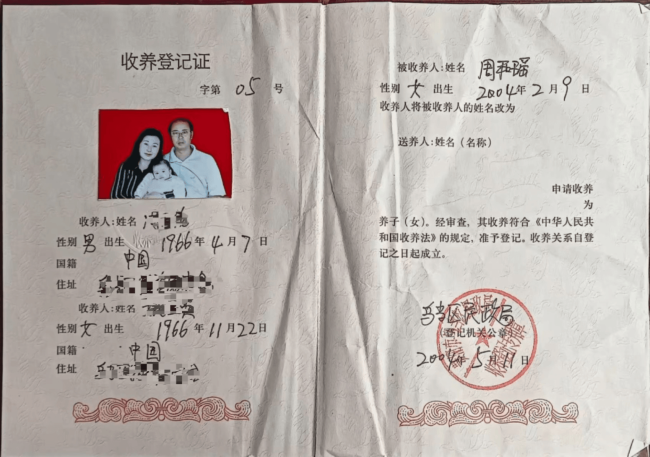 收养登记证
字第 05 号
收养人:姓名
性别 男 出生 1966年4月7日
国籍 中国
住址
收养人:姓名
性别 女 出生 1966年11月22日
国籍 中国
住址
被收养人:姓名 周
性别 女 出生 2004年2月9日
收养人将被收养人的姓名改为
送养人:姓名(名称)
申请收养
为
养子(女)。经审查,其收养符合《中华人民共
和国收养法》的规定,准予登记。收养关系自登
记之日起成立。
区民政局
(登记机关公章)
2004年5月11日